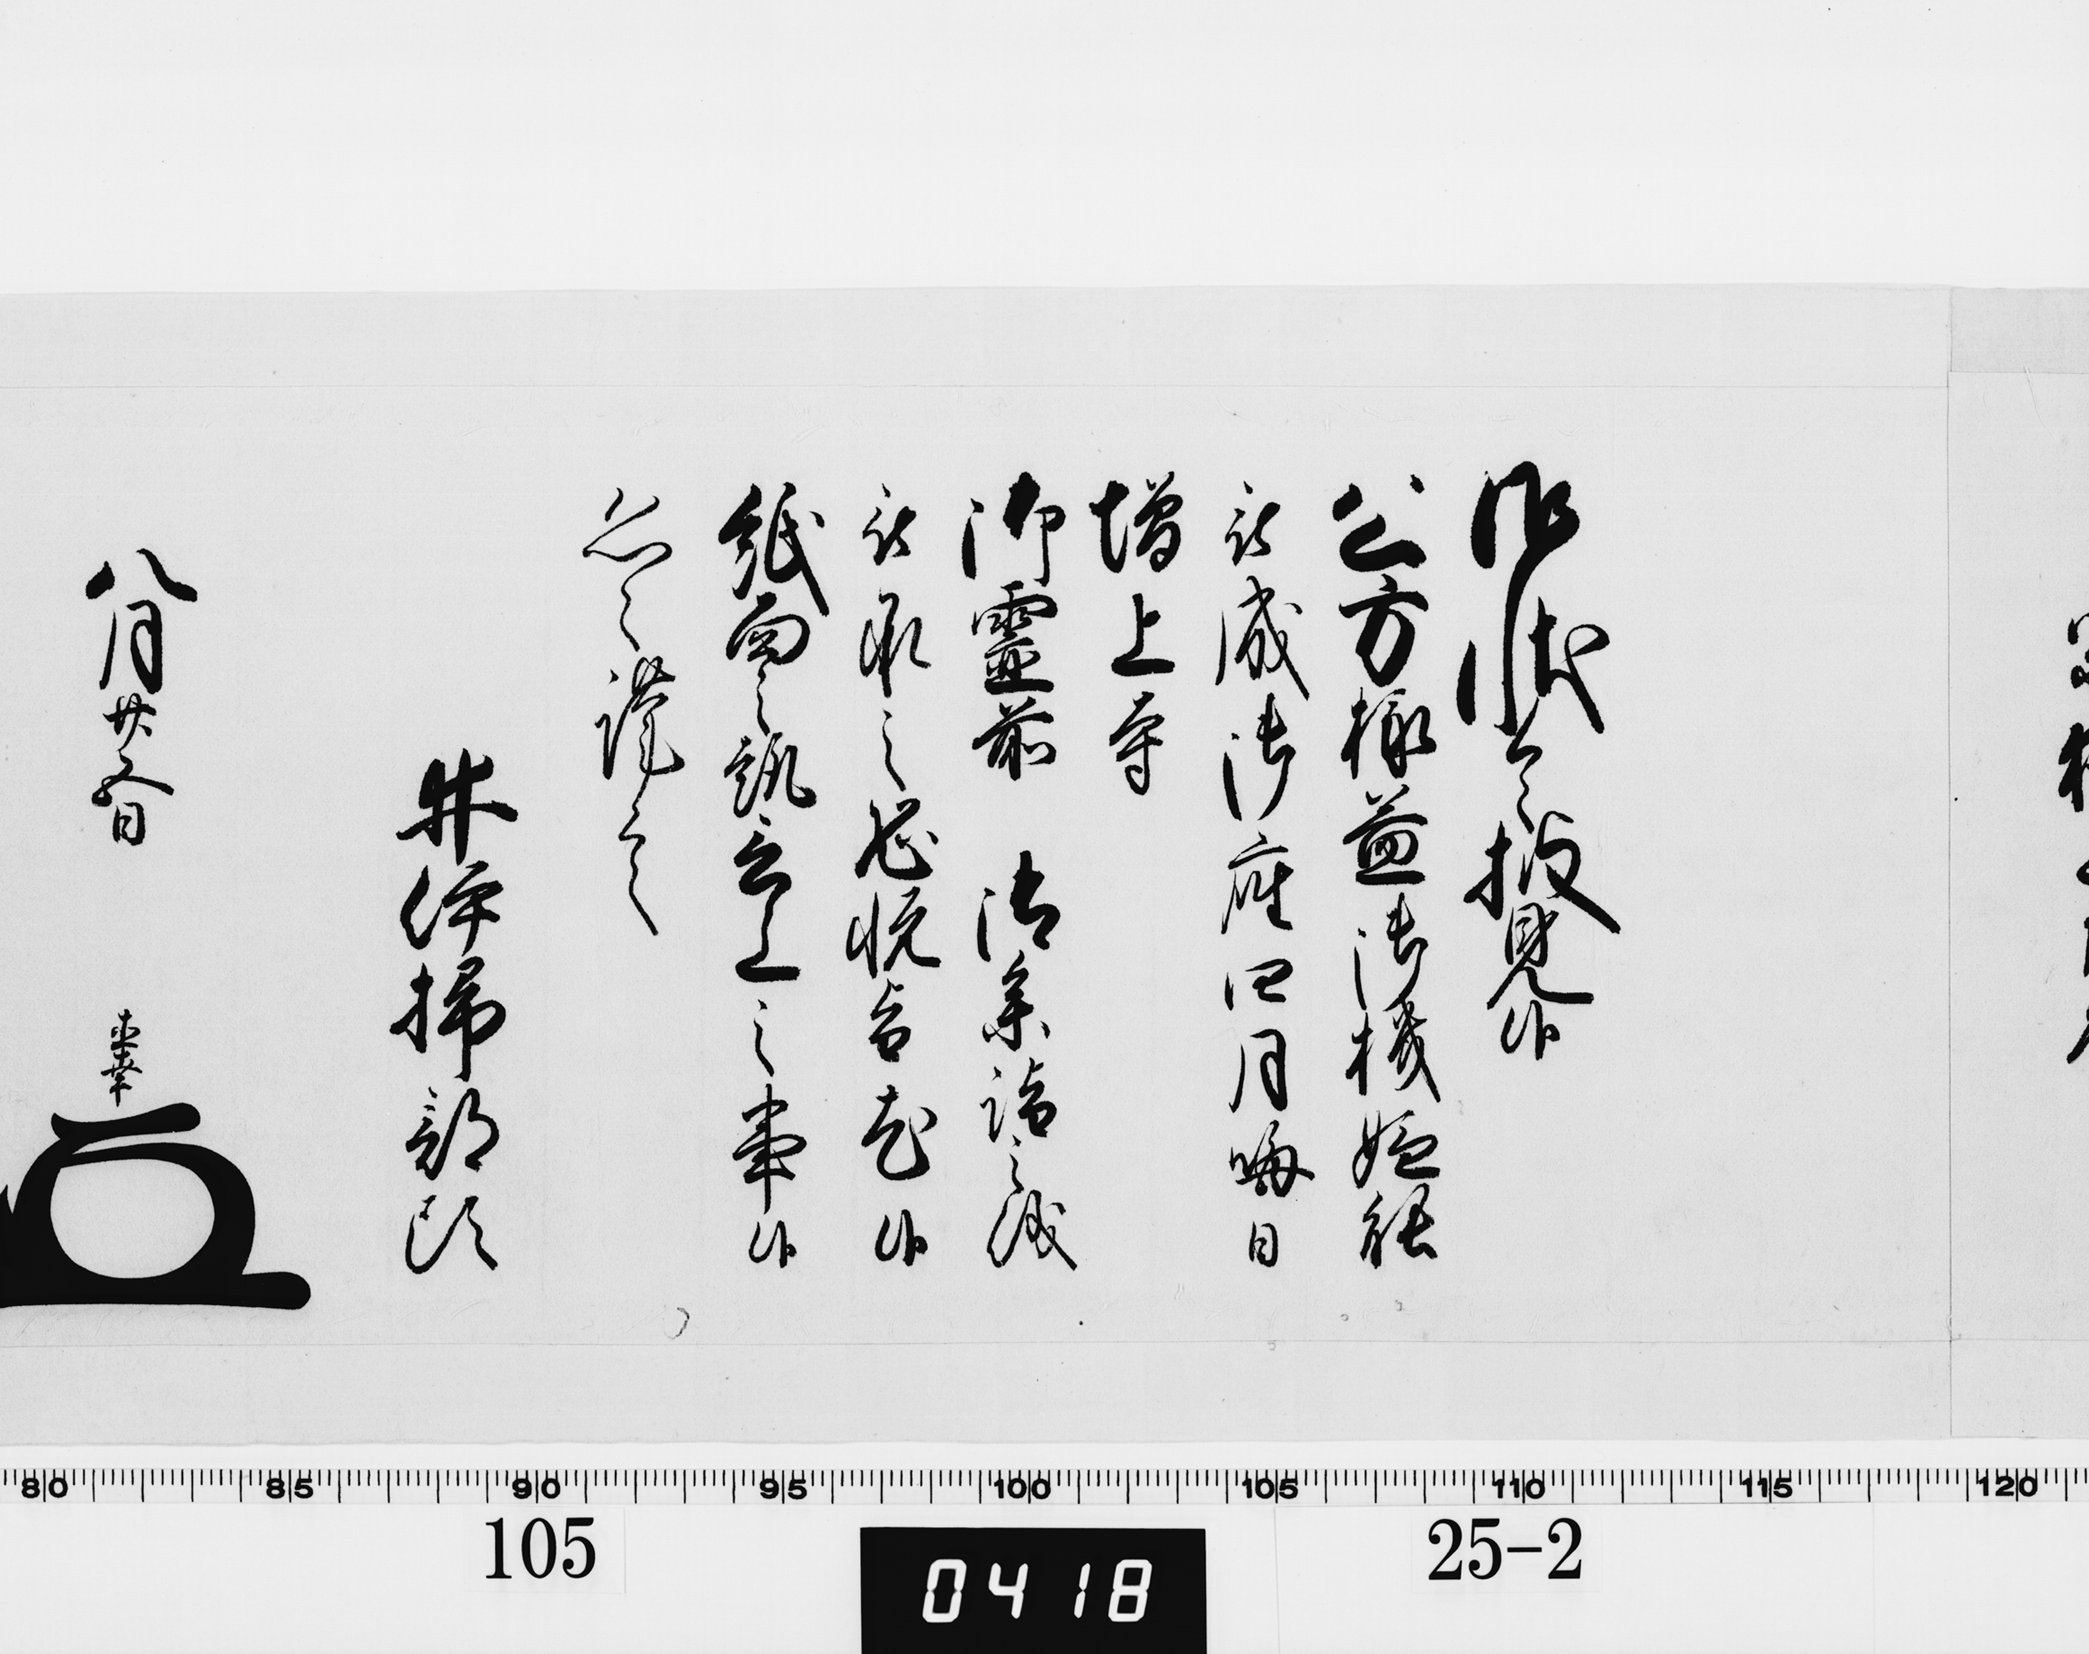 御状令披見候
公方様益御機嫌能
被成御座四月晦日
増上寺
御霊前 御参詣之儀
被承之恐悦旨尤候
紙面之趣言上之事候
恐々謹言
井伊掃部頭
八月廿五日
直幸
80 85 90 95 100 105 110 115 120
105 0418 25-2